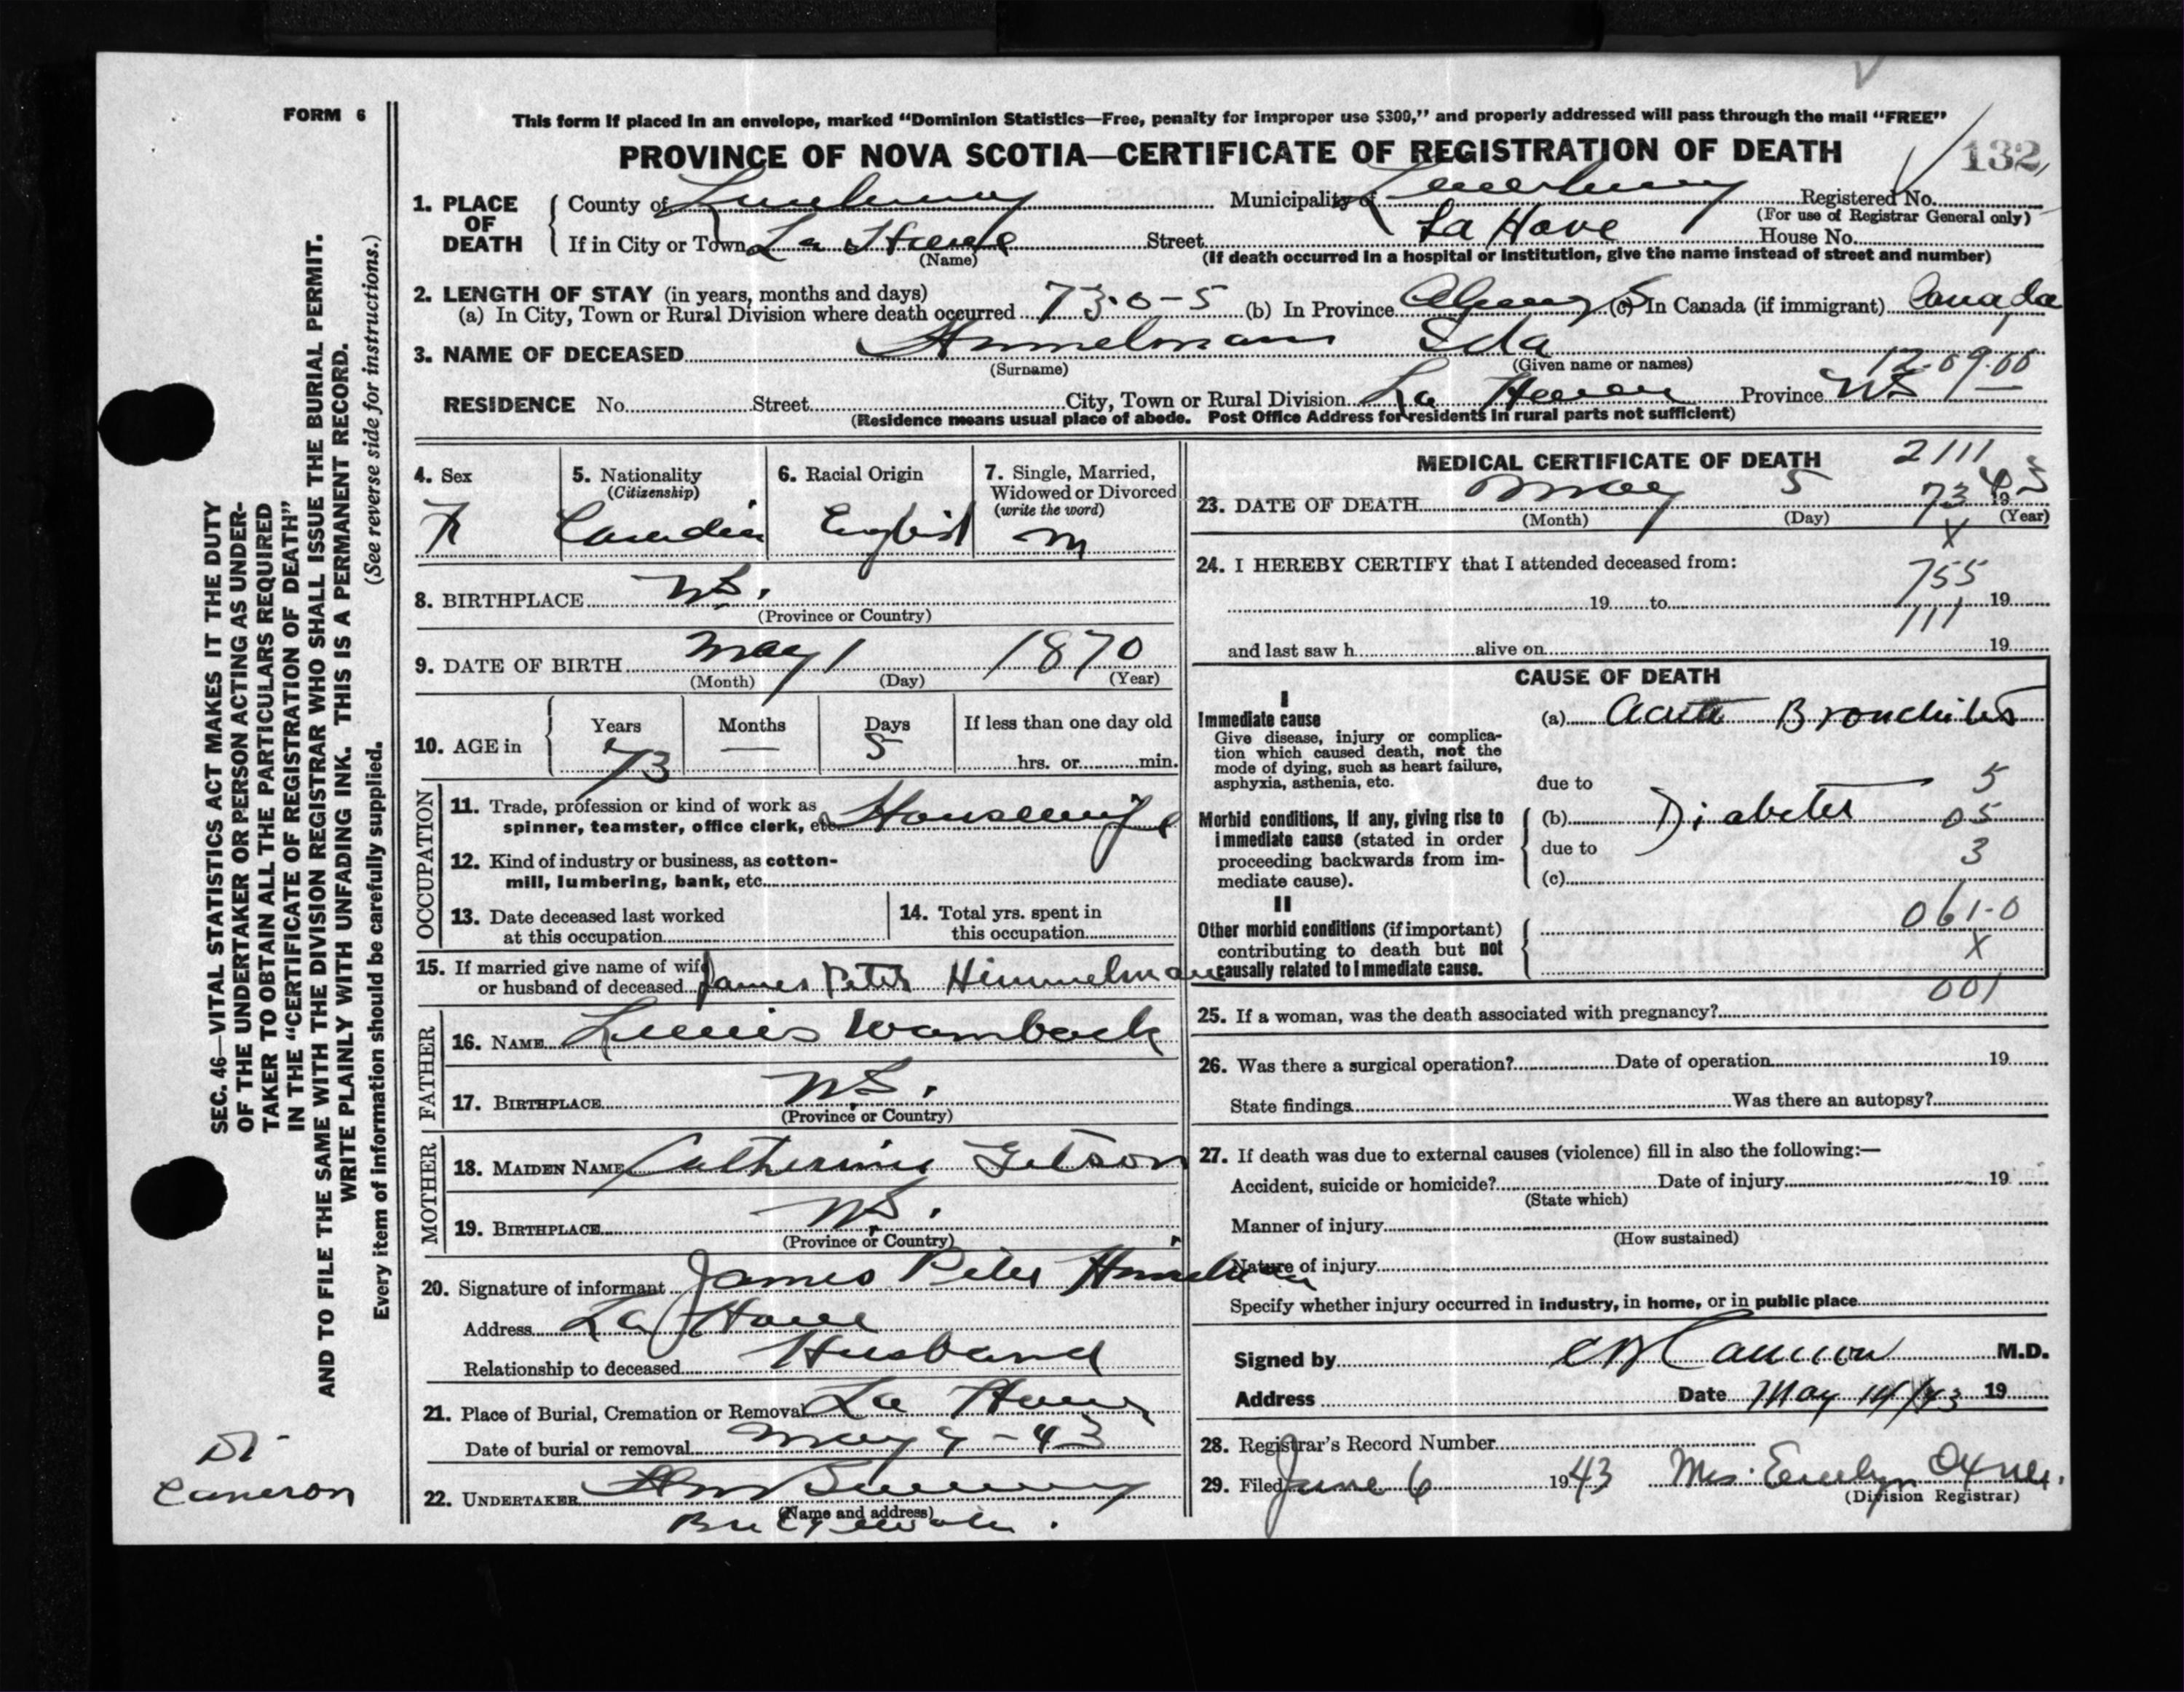 FORM 6
This form if placed in an envelope, marked “Dominion Statistics—Free, penalty for improper use $300,” and properly addressed will pass through the mail “FREE”
PROVINCE OF NOVA SCOTIA—CERTIFICATE OF REGISTRATION OF DEATH
132
1. PLACE OF DEATH
County of Lunenburg Municipality of Lunenburg Registered No.
(For use of Registrar General only)
If in City or Town La Have Street La Have House No.
(Name) (If death occurred in a hospital or institution, give the name instead of street and number)
2. LENGTH OF STAY (in years, months and days)
(a) In City, Town or Rural Division where death occurred 73-0-5 (b) In Province Always (c) In Canada (if immigrant) Canada
3. NAME OF DECEASED Himmelman Ida
(Surname) (Given name or names) 12-09-00
RESIDENCE No. Street City, Town or Rural Division La Have Province NS
(Residence means usual place of abode. Post Office Address for residents in rural parts not sufficient)
4. Sex F
5. Nationality (Citizenship) Canadian
6. Racial Origin English
7. Single, Married, Widowed or Divorced (write the word) m
8. BIRTHPLACE N.S.
(Province or Country)
9. DATE OF BIRTH May 1 1870
(Month) (Day) (Year)
10. AGE in Years 73 Months — Days 5 If less than one day old hrs. or min.
OCCUPATION
11. Trade, profession or kind of work as spinner, teamster, office clerk, etc. Housewife
12. Kind of industry or business, as cotton-
mill, lumbering, bank, etc.
13. Date deceased last worked
at this occupation
14. Total yrs. spent in
this occupation
15. If married give name of wife
or husband of deceased James Peter Himmelman
FATHER
16. NAME Lewis Wamback
17. BIRTHPLACE N.S.
(Province or Country)
MOTHER
18. MAIDEN NAME Catherine Getson
19. BIRTHPLACE N.S.
(Province or Country)
20. Signature of informant James Peter Himmelman
Address La Have
Relationship to deceased Husband
21. Place of Burial, Cremation or Removal La Have
Date of burial or removal May 9-43
22. UNDERTAKER
(Name and address)
MEDICAL CERTIFICATE OF DEATH
2111
23. DATE OF DEATH May 5 1943
(Month) (Day) (Year)
73
X
24. I HEREBY CERTIFY that I attended deceased from:
755
19 to 19
111
and last saw h alive on 19
CAUSE OF DEATH
I
Immediate cause
Give disease, injury or complica-
tion which caused death, not the
mode of dying, such as heart failure,
asphyxia, asthenia, etc.
(a) Acute Bronchitis
due to 5
Morbid conditions, if any, giving rise to
immediate cause (stated in order
proceeding backwards from im-
mediate cause).
(b) Diabetes 05
due to 3
(c)
II
Other morbid conditions (if important)
contributing to death but not
causally related to immediate cause.
061-0
X
001
25. If a woman, was the death associated with pregnancy?
26. Was there a surgical operation? Date of operation 19
State findings Was there an autopsy?
27. If death was due to external causes (violence) fill in also the following:—
Accident, suicide or homicide? Date of injury 19
(State which)
Manner of injury
(How sustained)
Nature of injury
Specify whether injury occurred in industry, in home, or in public place
Signed by Cameron M.D.
Address Date May 14/43 19
28. Registrar's Record Number
29. Filed June 6 1943 Mrs. Evelyn Oxner.
(Division Registrar)
SEC. 46—VITAL STATISTICS ACT MAKES IT THE DUTY
OF THE UNDERTAKER OR PERSON ACTING AS UNDER-
TAKER TO OBTAIN ALL THE PARTICULARS REQUIRED
IN THE “CERTIFICATE OF REGISTRATION OF DEATH”
AND TO FILE THE SAME WITH THE DIVISION REGISTRAR WHO SHALL ISSUE THE BURIAL PERMIT.
WRITE PLAINLY WITH UNFADING INK. THIS IS A PERMANENT RECORD.
Every item of information should be carefully supplied. (See reverse side for instructions.)
Dr
Cameron